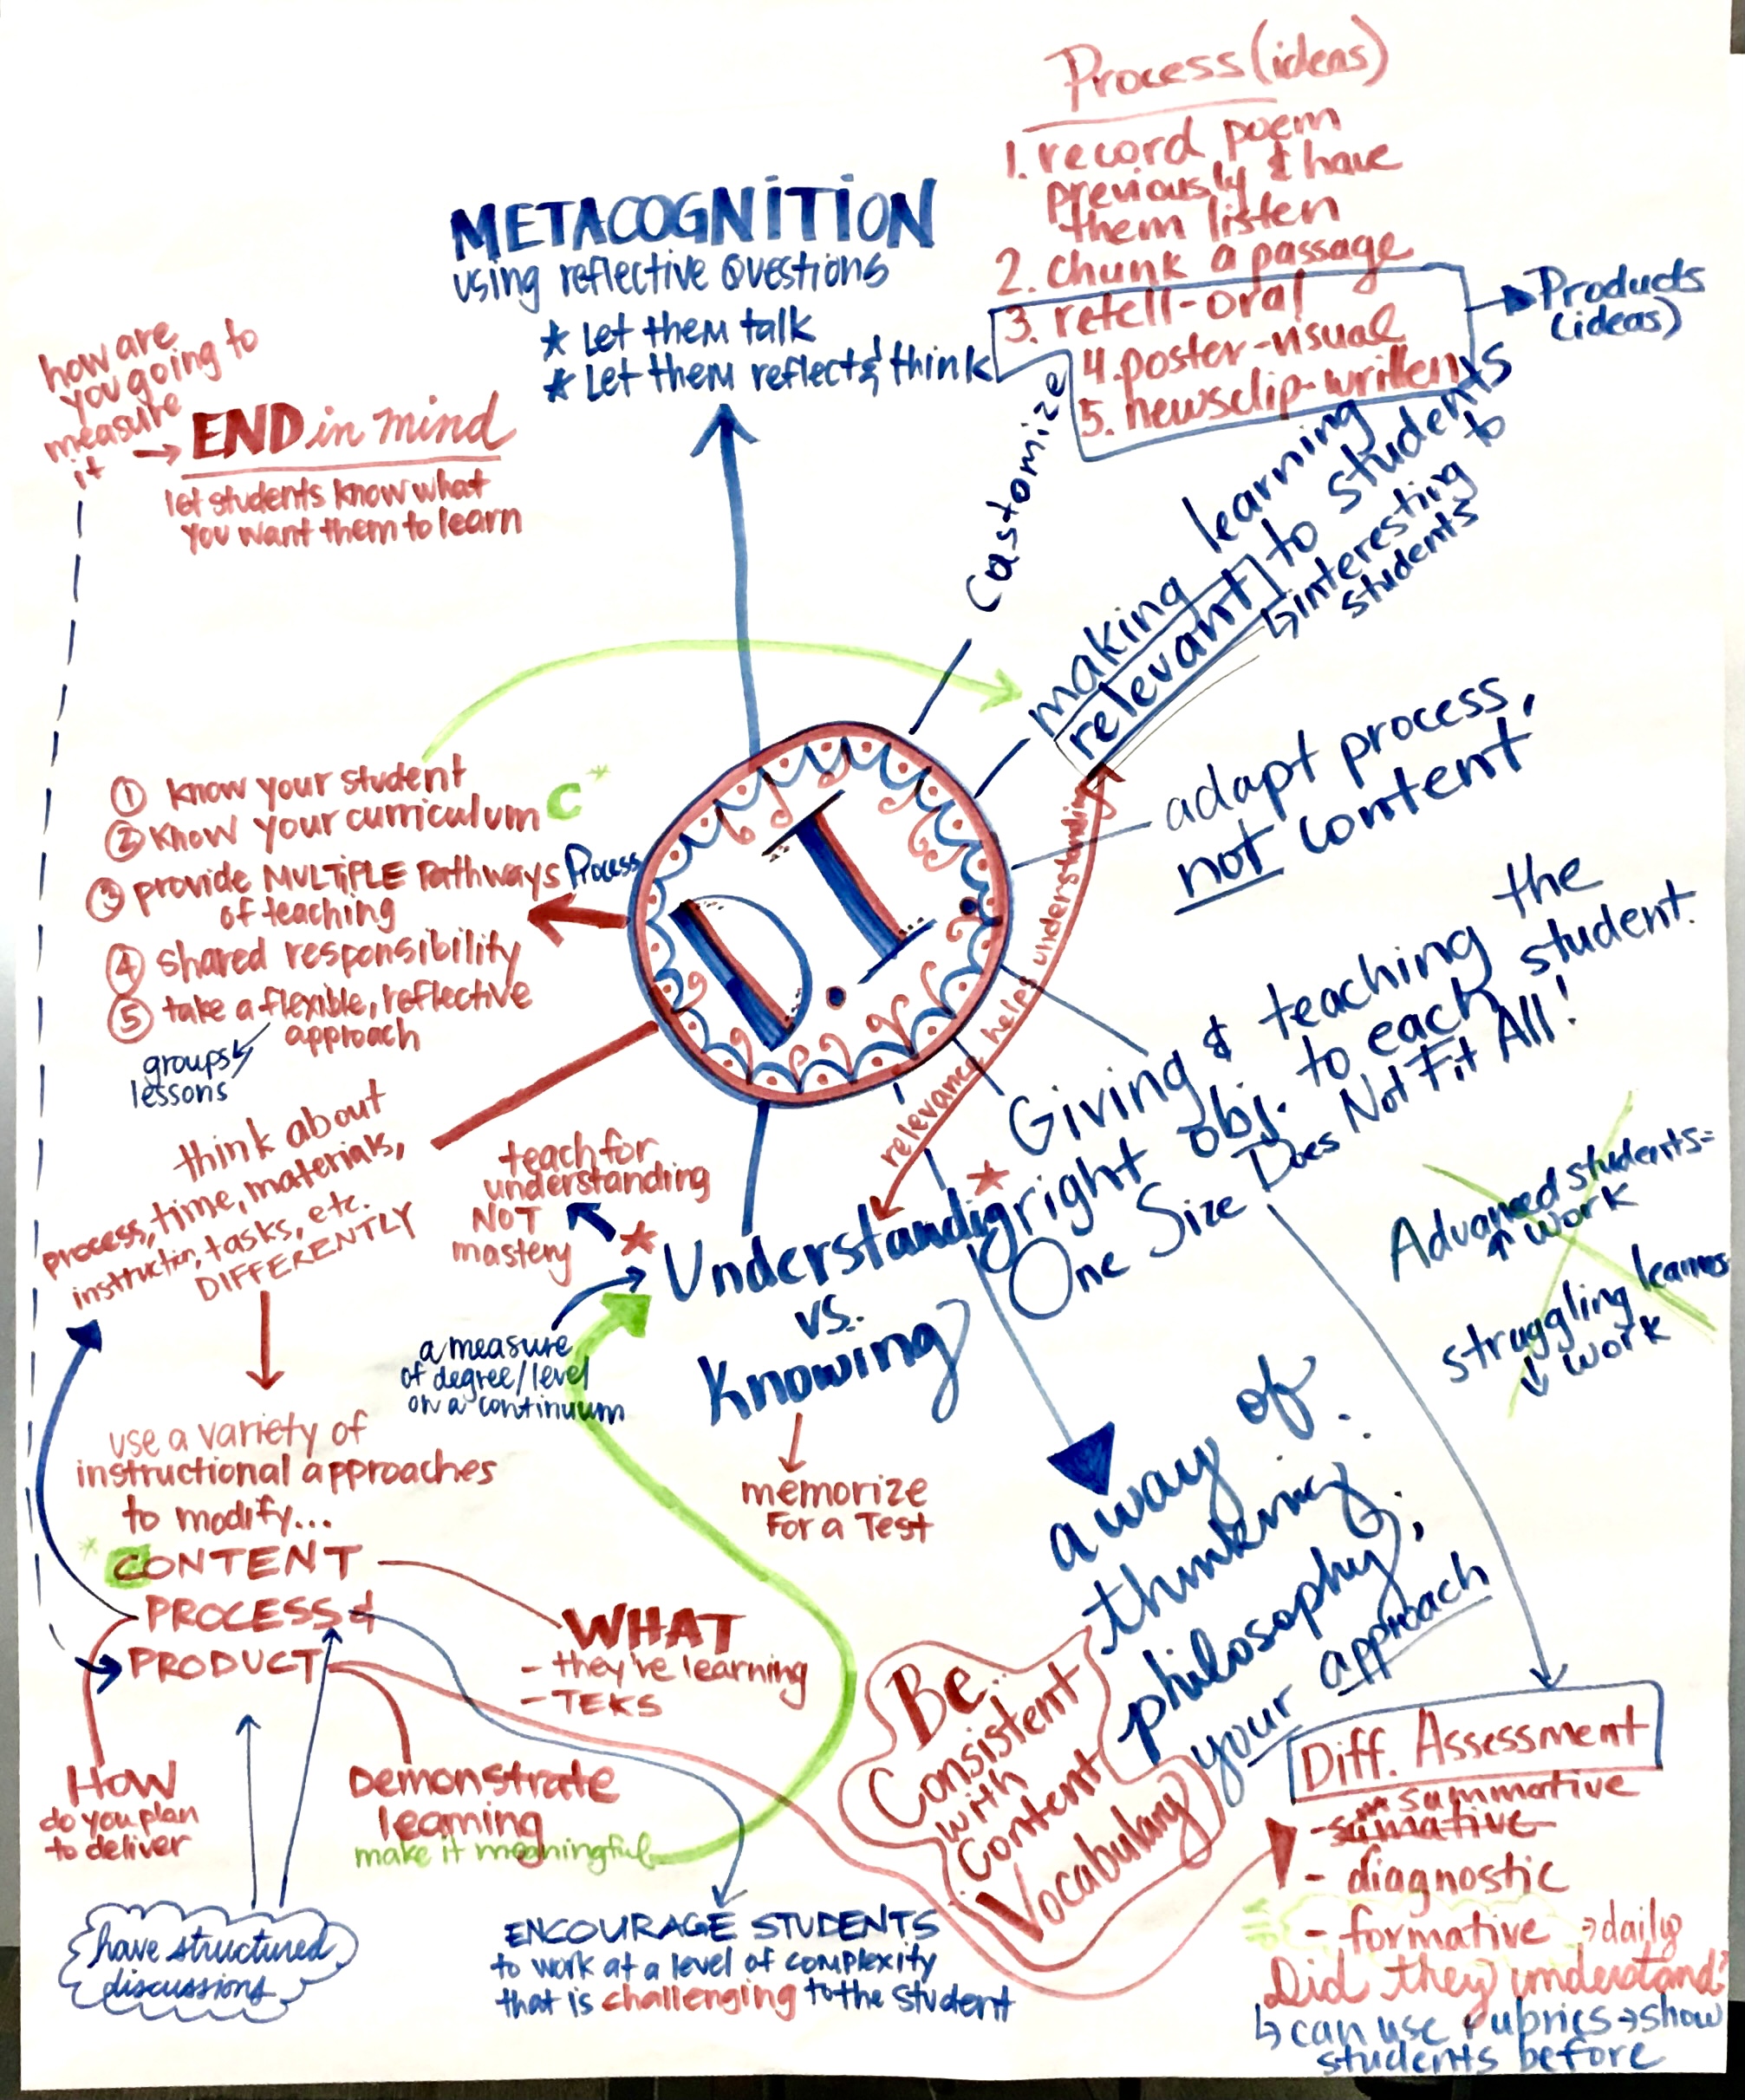 Process (ideas)
1. record poem
previously & have
them listen
2. chunk a passage
3. retell-oral
4. poster-visual
5. newsclip-written
Products
(ideas)
METACOGNITION
using reflective Questions
* Let them talk
* Let them reflect & think
how are
you going to
measure
it
→ END in mind
let students know what
you want them to learn
Customize
making learning
relevant to students
↳ interesting to
students
adapt process,
not content
① know your student
② know your curriculum
C*
③ provide MULTIPLE Pathways
Process
of teaching
④ shared responsibility
⑤ take a flexible, reflective
approach
groups
lessons
D.I.
relevance helps understanding
Giving & teaching the
right obj. to each student.
One Size Does Not Fit All!
think about
process, time, materials,
instruction, tasks, etc.
DIFFERENTLY
teach for
understanding
NOT
mastery
Understanding
vs.
Knowing
a measure
of degree/level
on a continuum
memorize
For a Test
Advanced students=
↑ work
struggling learners
↓ work
use a variety of
instructional approaches
to modify...
*CONTENT
PROCESS &
PRODUCT
WHAT
- they're learning
- TEKS
HOW
do you plan
to deliver
Demonstrate
learning
make it meaningful
have structured
discussions
ENCOURAGE STUDENTS
to work at a level of complexity
that is challenging to the student
a way of
thinking,
philosophy,
your approach
Be
Consistent
with
Content
Vocabulary
Diff. Assessment
summative
- sumative
- diagnostic
- formative → daily
Did they understand?
↳ can use rubrics → show
students before